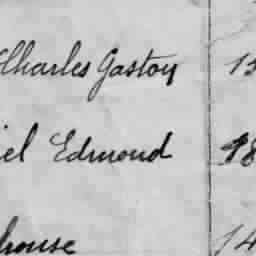 Charles Gaston 15
iel Edmond 18
house 14